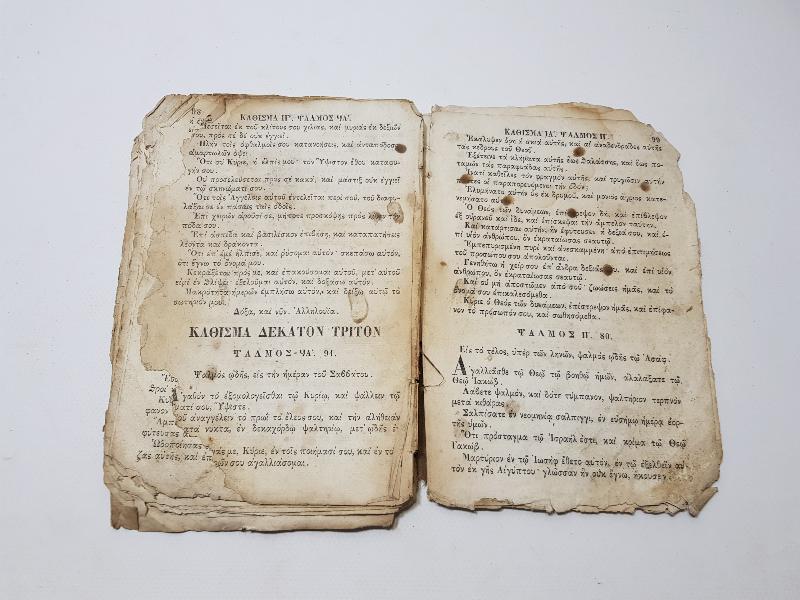 98
ΚΑΘΙΣΜΑ ΙΒ'. ΨΑΛΜΟΣ ϞΑ'.
Πεσεῖται ἐκ τοῦ κλίτους σου χιλιὰς, καὶ μυριὰς ἐκ δεξιῶν
σου, πρὸς σὲ δὲ οὐκ ἐγγιεῖ.
Πλὴν τοῖς ὀφθαλμοῖς σου κατανοήσεις, καὶ ἀνταπόδοσιν
ἁμαρτωλῶν ὄψει.
Ὅτι σὺ Κύριε, ἡ ἐλπίς μου· τὸν Ὕψιστον ἔθου καταφυ-
γήν σου.
Οὐ προσελεύσεται πρὸς σὲ κακὰ, καὶ μάστιξ οὐκ ἐγγιεῖ
ἐν τῷ σκηνώματί σου.
Ὅτι τοῖς Ἀγγέλοις αὐτοῦ ἐντελεῖται περὶ σοῦ, τοῦ διαφυ-
λάξαι σε ἐν πάσαις ταῖς ὁδοῖς.
Ἐπὶ χειρῶν ἀροῦσί σε, μήποτε προσκόψῃς πρὸς λίθον τὸν
πόδα σου.
Ἐπὶ ἀσπίδα καὶ βασιλίσκον ἐπιβήσῃ, καὶ καταπατήσεις
λέοντα καὶ δράκοντα.
Ὅτι ἐπ' ἐμὲ ἤλπισε, καὶ ῥύσομαι αὐτόν· σκεπάσω αὐτὸν,
ὅτι ἔγνω τὸ ὄνομά μου.
Κεκράξεται πρός με, καὶ ἐπακούσομαι αὐτοῦ, μετ' αὐτοῦ
εἰμι ἐν θλίψει· ἐξελοῦμαι αὐτὸν, καὶ δοξάσω αὐτόν.
Μακρότητα ἡμερῶν ἐμπλήσω αὐτὸν, καὶ δείξω αὐτῷ τὸ
σωτήριόν μου.
Δόξα, καὶ νῦν. Ἀλληλούϊα.
ΚΑΘΙΣΜΑ ΔΕΚΑΤΟΝ ΤΡΙΤΟΝ
ΨΑΛΜΟΣ ϞΑ'. 91.
Ψαλμὸς ᾠδῆς, εἰς τὴν ἡμέραν τοῦ Σαββάτου.
Ἀγαθὸν τὸ ἐξομολογεῖσθαι τῷ Κυρίῳ, καὶ ψάλλειν τῷ
ὀνόματί σου, Ὕψιστε.
Τοῦ ἀναγγέλειν τὸ πρωῒ τὸ ἔλεός σου, καὶ τὴν ἀλήθειάν
κατὰ νύκτα, ἐν δεκαχόρδῳ ψαλτηρίῳ, μετ' ᾠδῆς ἐν
φύτευσας
Ὡδοποίησας
με, Κύριε, ἐν τοῖς ποιήμασί σου, καὶ ἐν τοῖς
ζας αὐτῆς, καὶ
σου ἀγαλλιάσομαι.
ΚΑΘΙΣΜΑ ΙΑ'. ΨΑΛΜΟΣ Π'. 99
Ἐκάλυψεν ὄρη ἡ σκιὰ αὐτῆς, καὶ αἱ ἀναδενδράδες αὐτῆς
τὰς κέδρους τοῦ Θεοῦ.
Ἐξέτεινε τὰ κλήματα αὐτῆς ἕως θαλάσσης, καὶ ἕως πο-
ταμῶν τὰς παραφυάδας αὐτῆς.
Ἵνατί καθεῖλες τὸν φραγμὸν αὐτῆς, καὶ τρυγῶσιν αὐτὴν
πάντες οἱ παραπορευόμενοι τὴν ὁδόν;
Ἐλυμήνατο αὐτὴν ὗς ἐκ δρυμοῦ, καὶ μονιὸς ἄγριος κατε-
νεμήσατο αὐτήν.
Ὁ Θεὸς τῶν δυνάμεων, ἐπίστρεψον δὴ, καὶ ἐπίβλεψον
ἐξ οὐρανοῦ καὶ ἴδε, καὶ ἐπίσκεψαι τὴν ἄμπελον ταύτην.
Καὶ κατάρτισαι αὐτὴν, ἣν ἐφύτευσεν ἡ δεξιά σου, καὶ ἐ-
πὶ υἱὸν ἀνθρώπου, ὃν ἐκραταίωσας σεαυτῷ.
Ἐμπεπυρισμένη πυρὶ καὶ ἀνεσκαμμένη· ἀπὸ ἐπιτιμήσεως
τοῦ προσώπου σου ἀπολοῦνται.
Γενηθήτω ἡ χείρ σου ἐπ' ἄνδρα δεξιᾶς σου, καὶ ἐπὶ υἱὸν
ἀνθρώπου, ὃν ἐκραταίωσας σεαυτῷ.
Καὶ οὐ μὴ ἀποστῶμεν ἀπὸ σοῦ· ζωώσεις ἡμᾶς, καὶ τὸ
ὄνομά σου ἐπικαλεσόμεθα.
Κύριε ὁ Θεὸς τῶν δυνάμεων, ἐπίστρεψον ἡμᾶς, καὶ ἐπίφα-
νον τὸ πρόσωπόν σου, καὶ σωθησόμεθα.
ΨΑΛΜΟΣ Π'. 80.
Εἰς τὸ τέλος, ὑπὲρ τῶν ληνῶν, ψαλμὸς ᾠδῆς τῷ Ἀσάφ.
Ἀγαλλιᾶσθε τῷ Θεῷ τῷ βοηθῷ ἡμῶν, ἀλαλάξατε τῷ
Θεῷ Ἰακώβ.
Λάβετε ψαλμὸν, καὶ δότε τύμπανον, ψαλτήριον τερπνὸν
μετὰ κιθάρας.
Σαλπίσατε ἐν νεομηνίᾳ σάλπιγγι, ἐν εὐσήμῳ ἡμέρᾳ ἑορ-
τῆς ὑμῶν.
Ὅτι πρόσταγμα τῷ Ἰσραήλ ἐστι, καὶ κρίμα τῷ Θεῷ
Ἰακώβ.
Μαρτύριον ἐν τῷ Ἰωσὴφ ἔθετο αὐτὸν, ἐν τῷ ἐξελθεῖν αὐ-
τὸν ἐκ γῆς Αἰγύπτου· γλῶσσαν ἣν οὐκ ἔγνω, ἤκουσεν.